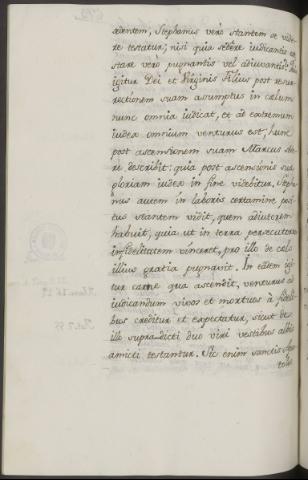 sedentem, Stephanus verò stantem se vide-
re testatur; nisi quia sedere iudicantis est
stare verò pugnantis vel adiuvantis.
igitur Dei et Virginis Filius post resur-
rectionem suam assumptus in cælum
nunc omnia iudicat, et ad extremum
iudex omnium venturus est, hunc
post ascensionem suam Marcus sede-
re describit: quia post ascensionis suæ
gloriam iudex in fine videbitur, Steph-
nus autem in laboris certamine posi-
tus stantem vidit, quem adiutorem
habuit, quia ut in terra persecutorum
infidelitatem vinceret, pro illo de cælo
illius gratia pugnavit. In eadem igi-
tur carne qua ascendit, venturus ad
iudicandum vivos et mortuos à fideli-
bus creditur et expectatur, sicut de
illo supradicti duo viri vestibus albis
amicti testantur. Sic enim sanctis Apo-